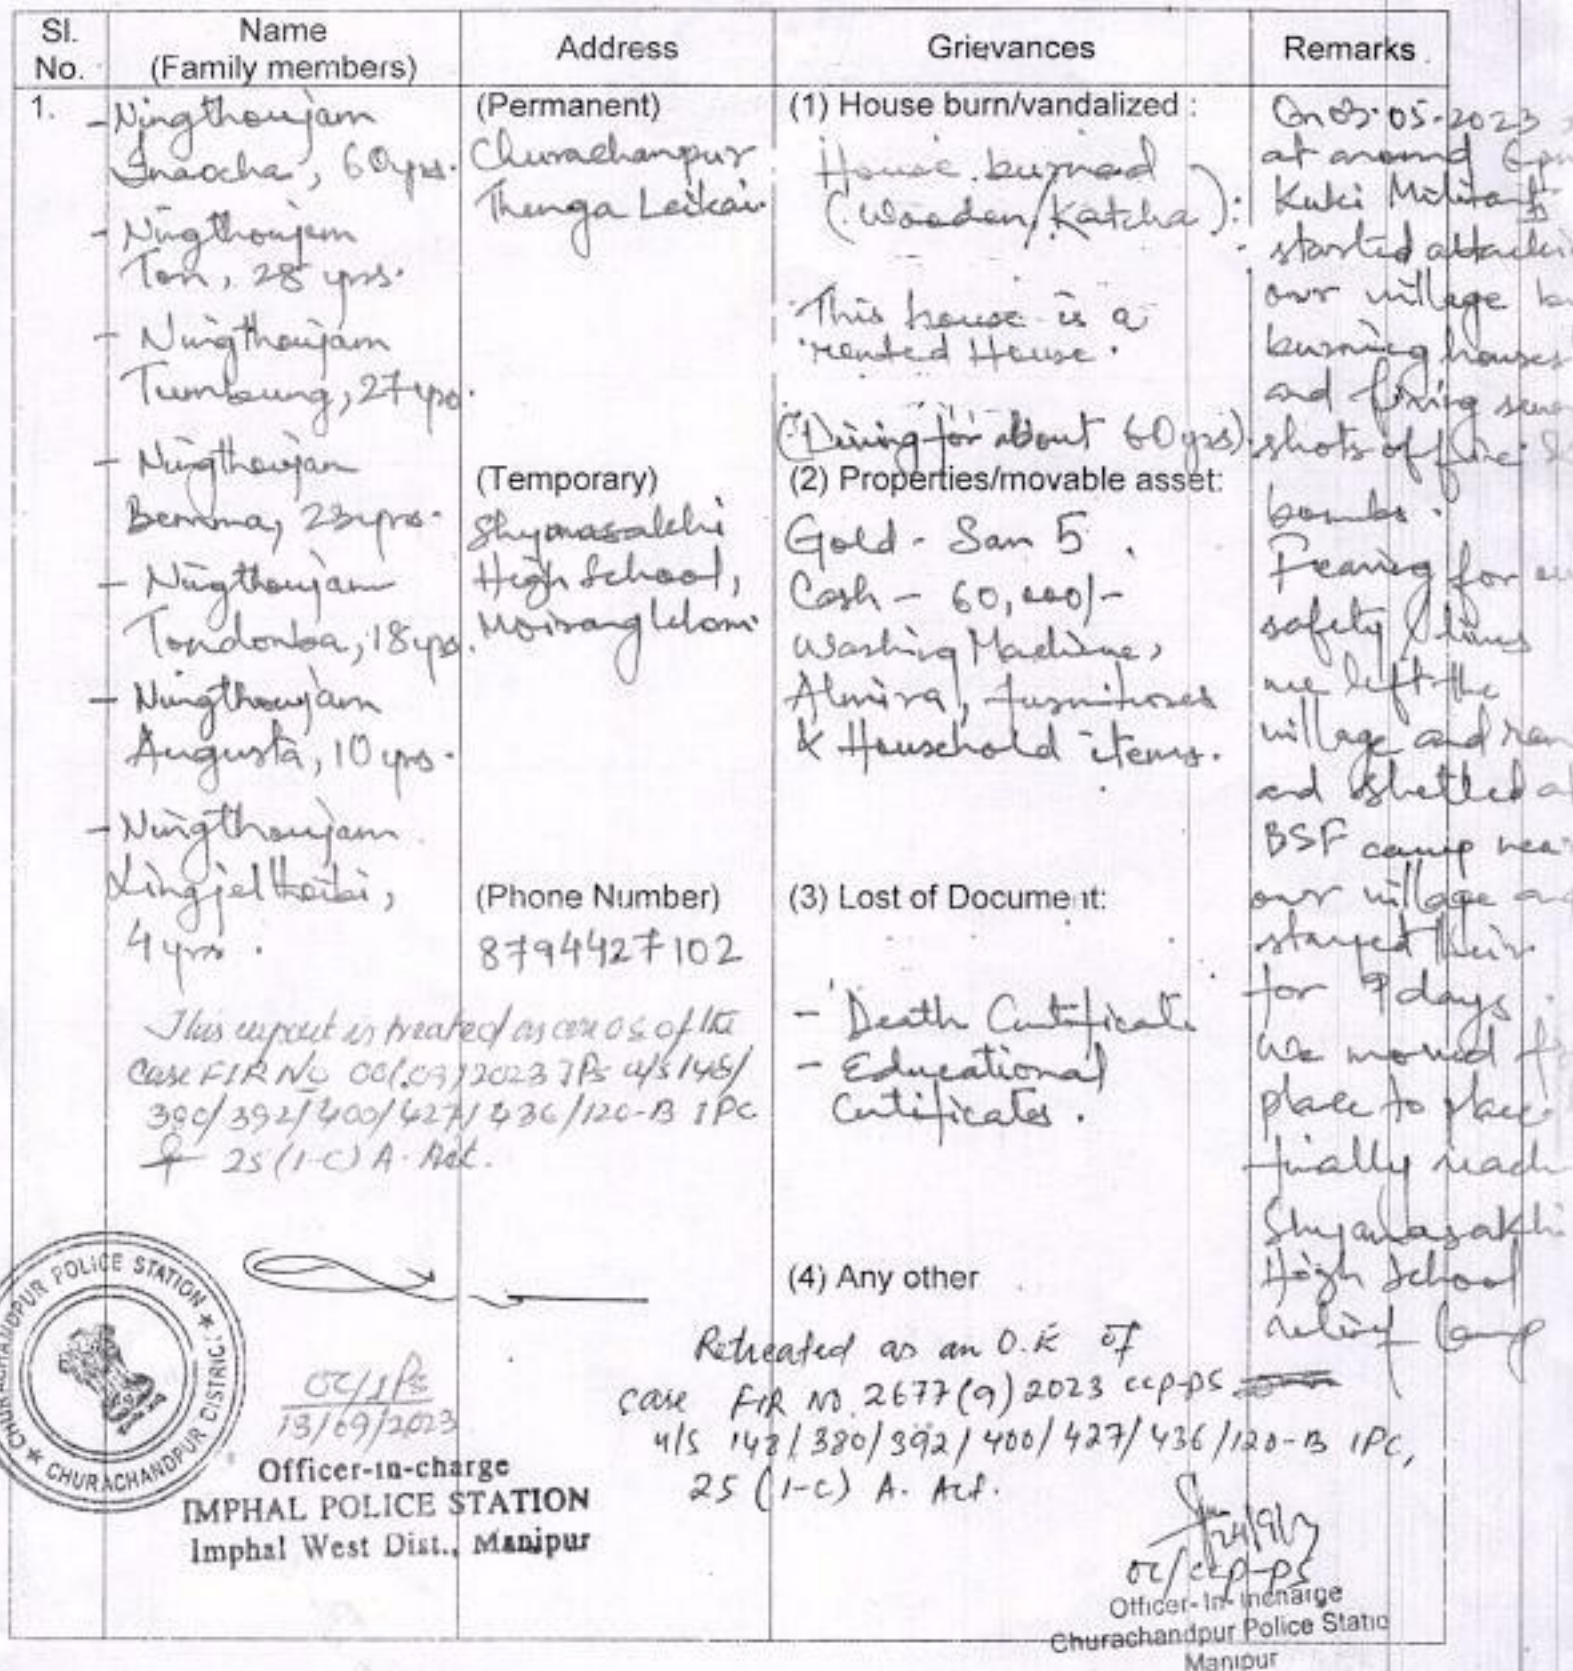 Sl. No.
Name (Family members)
Address
Grievances
Remarks
1.
- Ningthoujam
Inaocha, 60 yrs.
- Ningthoujam
Ton, 28 yrs.
- Ningthoujam
Tumbung, 27 yrs.
- Ningthoujam
Bemma, 23 yrs.
- Ningthoujam
Tondonba, 18 yrs.
- Ningthoujam
Augusta, 10 yrs.
- Ningthoujam
Lingjel
4 yrs.
(Permanent)
Churachanpur
Thenga Leikai.
(Temporary)
Shyamasakhi
High School,
Moirang
(Phone Number)
8794427102
(1) House burn/vandalized :
House burned
(Wooden/Katcha):
This house is a
rented House.
(Living for about 60 yrs)
(2) Properties/movable asset:
Gold - San 5
Cash - 60,000/-
Washing Machine,
Almira, furnitures
& Household items.
(3) Lost of Document:
- Death Certificate
- Educational
Certificates.
(4) Any other
On 03.05-2023
at around 6pm
Kuki Militants
started attacki
our village b
burning houses
and firing seve
shots of fire &
bombs.
Fearing for ou
safety / lives
we left the
village and ran
and shelted at
BSF camp nea
our village a
stayed their
for 9 days.
We moved f
place to place
finally reach
Shyamasakhi
High School
relief Camp
This report is treated as one O.E of the
Case FIR No 2023 IPS u/s 148/
380/392/400/427/436/120-B IPC
& 25 (1-C) A. Act.
CHURACHANDPUR POLICE STATION
CHURACHANDPUR DISTRICT
OC/IPS
13/09/2023
Officer-in-charge
IMPHAL POLICE STATION
Imphal West Dist., Manipur
Retreated as an O.E of
case FIR NO. 2677(9)2023 ccp-ps
u/s 148/380/392/400/427/436/120-B IPC,
25 (1-c) A. Act.
24/9/23
OC/ccp-ps
Officer-In-Incharge
Churachandpur Police Statio
Manipur